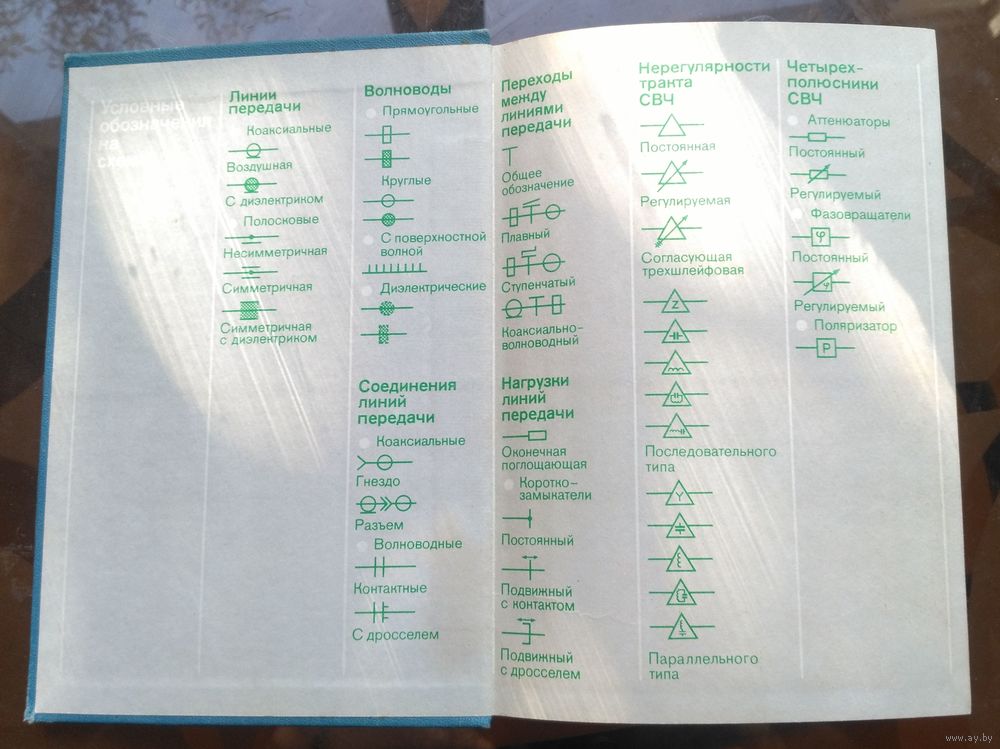 Условные
обозначения
на
Линии
передачи
Коаксиальные
Воздушная
С диэлектриком
Полосковые
Несимметричная
Симметричная
Симметричная
с диэлектриком
Волноводы
Прямоугольные
Круглые
С поверхностной
волной
Диэлектрические
Соединения
линий
передачи
Коаксиальные
Гнездо
Разъем
Волноводные
Контактные
С дросселем
Переходы
между
линиями
передачи
Общее
обозначение
Плавный
Ступенчатый
Коаксиально-
волноводный
Нагрузки
линий
передачи
Оконечная
поглощающая
Коротко-
замыкатели
Постоянный
Подвижный
с контактом
Подвижный
с дросселем
Нерегулярности
тракта
СВЧ
Постоянная
Регулируемая
Согласующая
трехшлейфовая
Z
Последовательного
типа
Y
Параллельного
типа
Четырех-
полюсники
СВЧ
Аттенюаторы
Постоянный
Регулируемый
Фазовращатели
φ
Постоянный
φ
Регулируемый
Поляризатор
P
www.ay.by